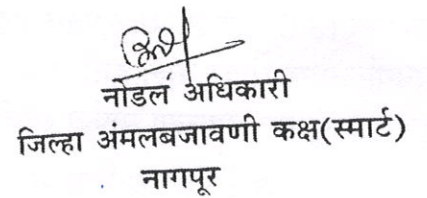 नोडल अधिकारी
जिल्हा अंमलबजावणी कक्ष(स्मार्ट)
नागपूर